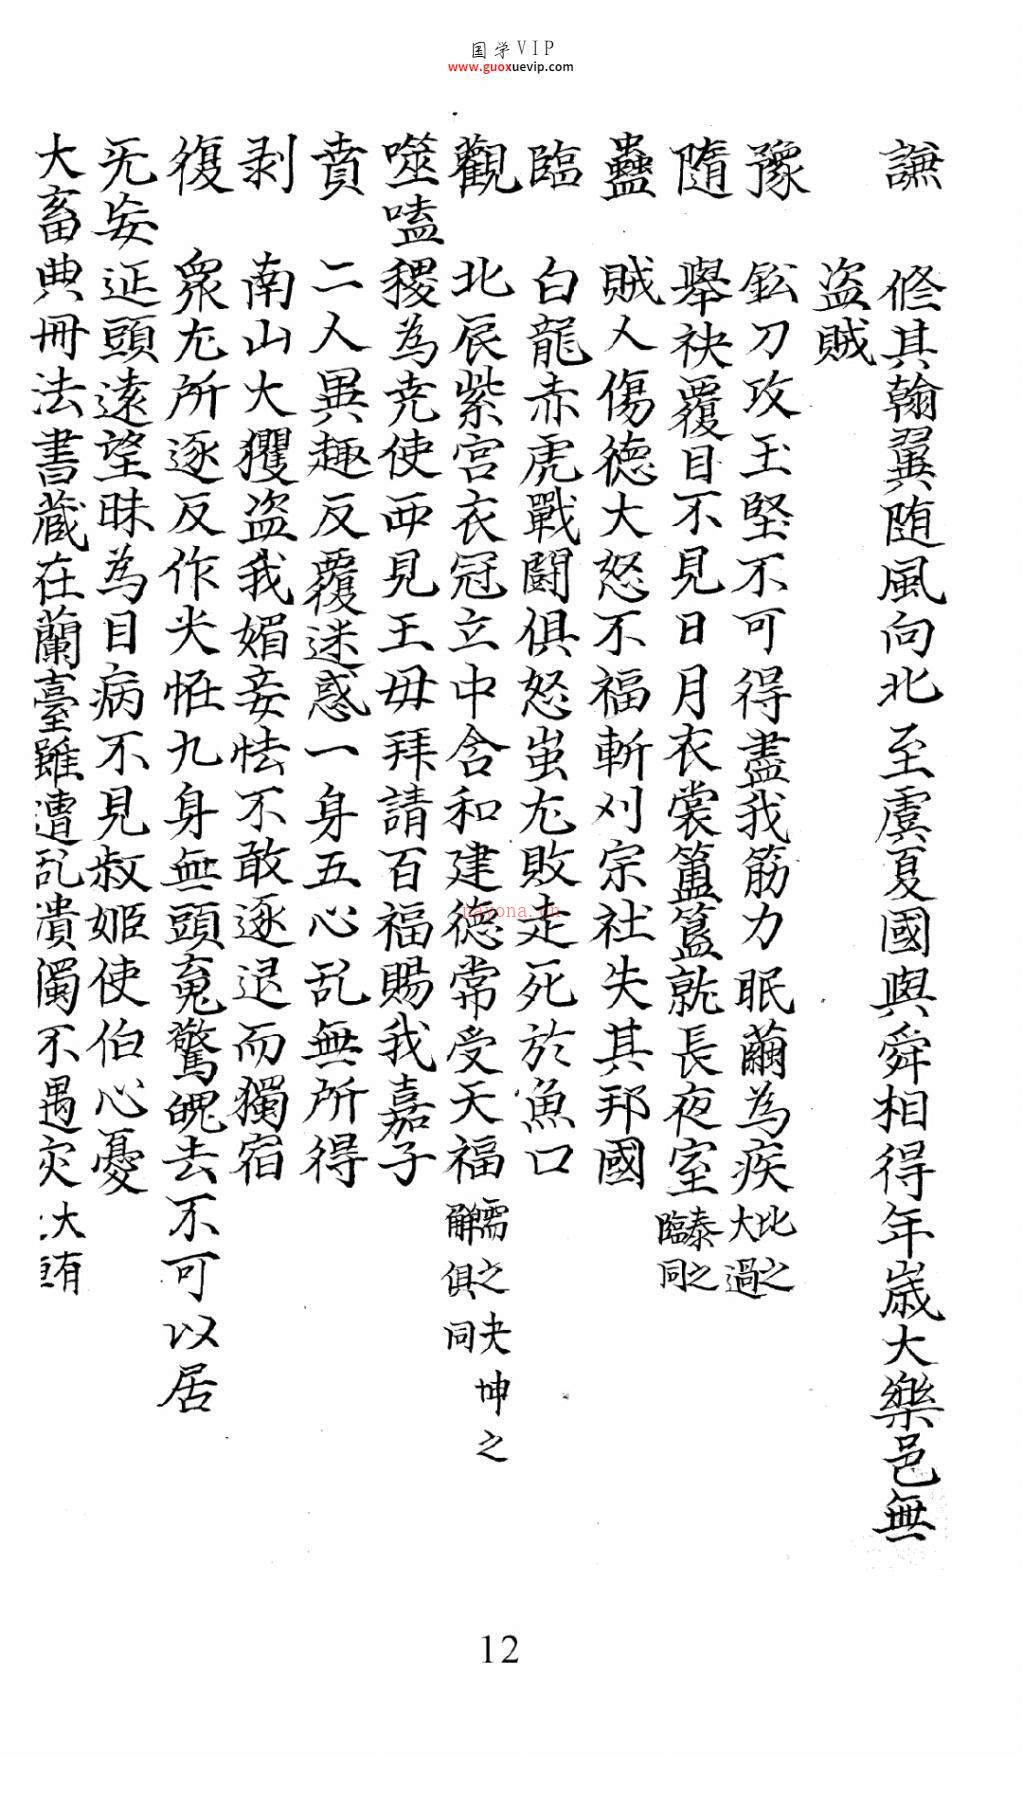 国学VIP
www.guoxuevip.com
謙 修其翰翼随風向北至虞夏國與舜相得年歳大樂邑無
盗賊
豫 鈆刀攻玉堅不可得盡我筋力眠繭為疾比之大過
隨 舉袂覆目不見日月衣裳簠簋就長夜室泰之臨同
蠱 賊人傷德大怒不福斬刈宗社失其邦國
臨 白龍赤虎戰鬪俱怒蚩尤敗走死於魚口
觀 北辰紫宮衣冠立中含和建德常受天福需之夬坤之解俱同
噬嗑 稷為尭使西見王毋拜請百福賜我嘉子
賁 二人異趣反覆迷惑一身五心乱無所得
剥 南山大玃盗我媚妾怯不敢逐退而獨宿
復 衆尤所逐反作大恠九身無頭䰟驚魄去不可以居
无妄 延頭逺望眛為目病不見叔姬使伯心憂
大畜 典冊法書蔵在蘭臺雖遭乱潰獨不遇灾大有
nayona.cn
12